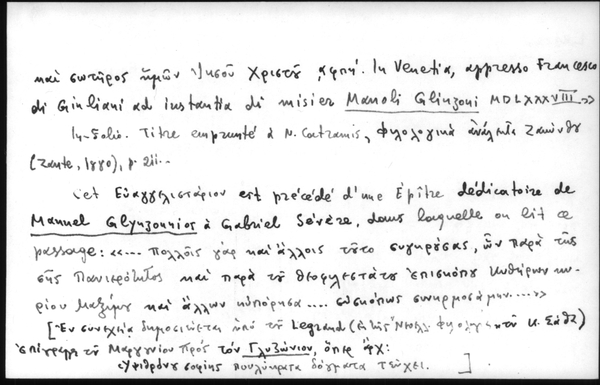 καὶ σωτῆρος ἡμῶν Ἰησοῦ Χριστοῦ ͵αφπή. In Venetia, appresso Francesco
di Giuliani ad instantia di misier Manoli Glinzoni MDLXXXVIII.»
In-folio. Titre emprunté à N. Catramis, Φιλολογικὰ ἀνάλεκτα Ζακύνθου
(Zante, 1880), p. 211..
Cet Εὐαγγελιστάριον est précédé d'une Épître dédicatoire de
Manuel Glynzonnios à Gabriel Sévère, dans laquelle on lit ce
passage: «... πολλοῖς γὰρ καὶ ἄλλοις τοῦτο συγκρίσας, ὧν παρὰ τῆς
σῆς Πανιερότητος καὶ παρὰ τοῦ θεοφιλεστάτου ἐπισκόπου Κυθήρων κυ-
ρίου Μαξίμου καὶ ἄλλων ηὐπόρησα.... εὐσκόπως συνηρμοσάμην....»
[Ἐν συνεχείᾳ δημοσιεύεται ὑπὸ τοῦ Legrand τοῦ Κ. Σάθα)
ἐπίγραμμα τοῦ Μαργουνίου πρὸς τὸν Γλυζώνιον, ὅπερ ἄρχ:
Ὑψιθρόνου σοφίης πουλύκρατα δόγματα τεύχει. ]